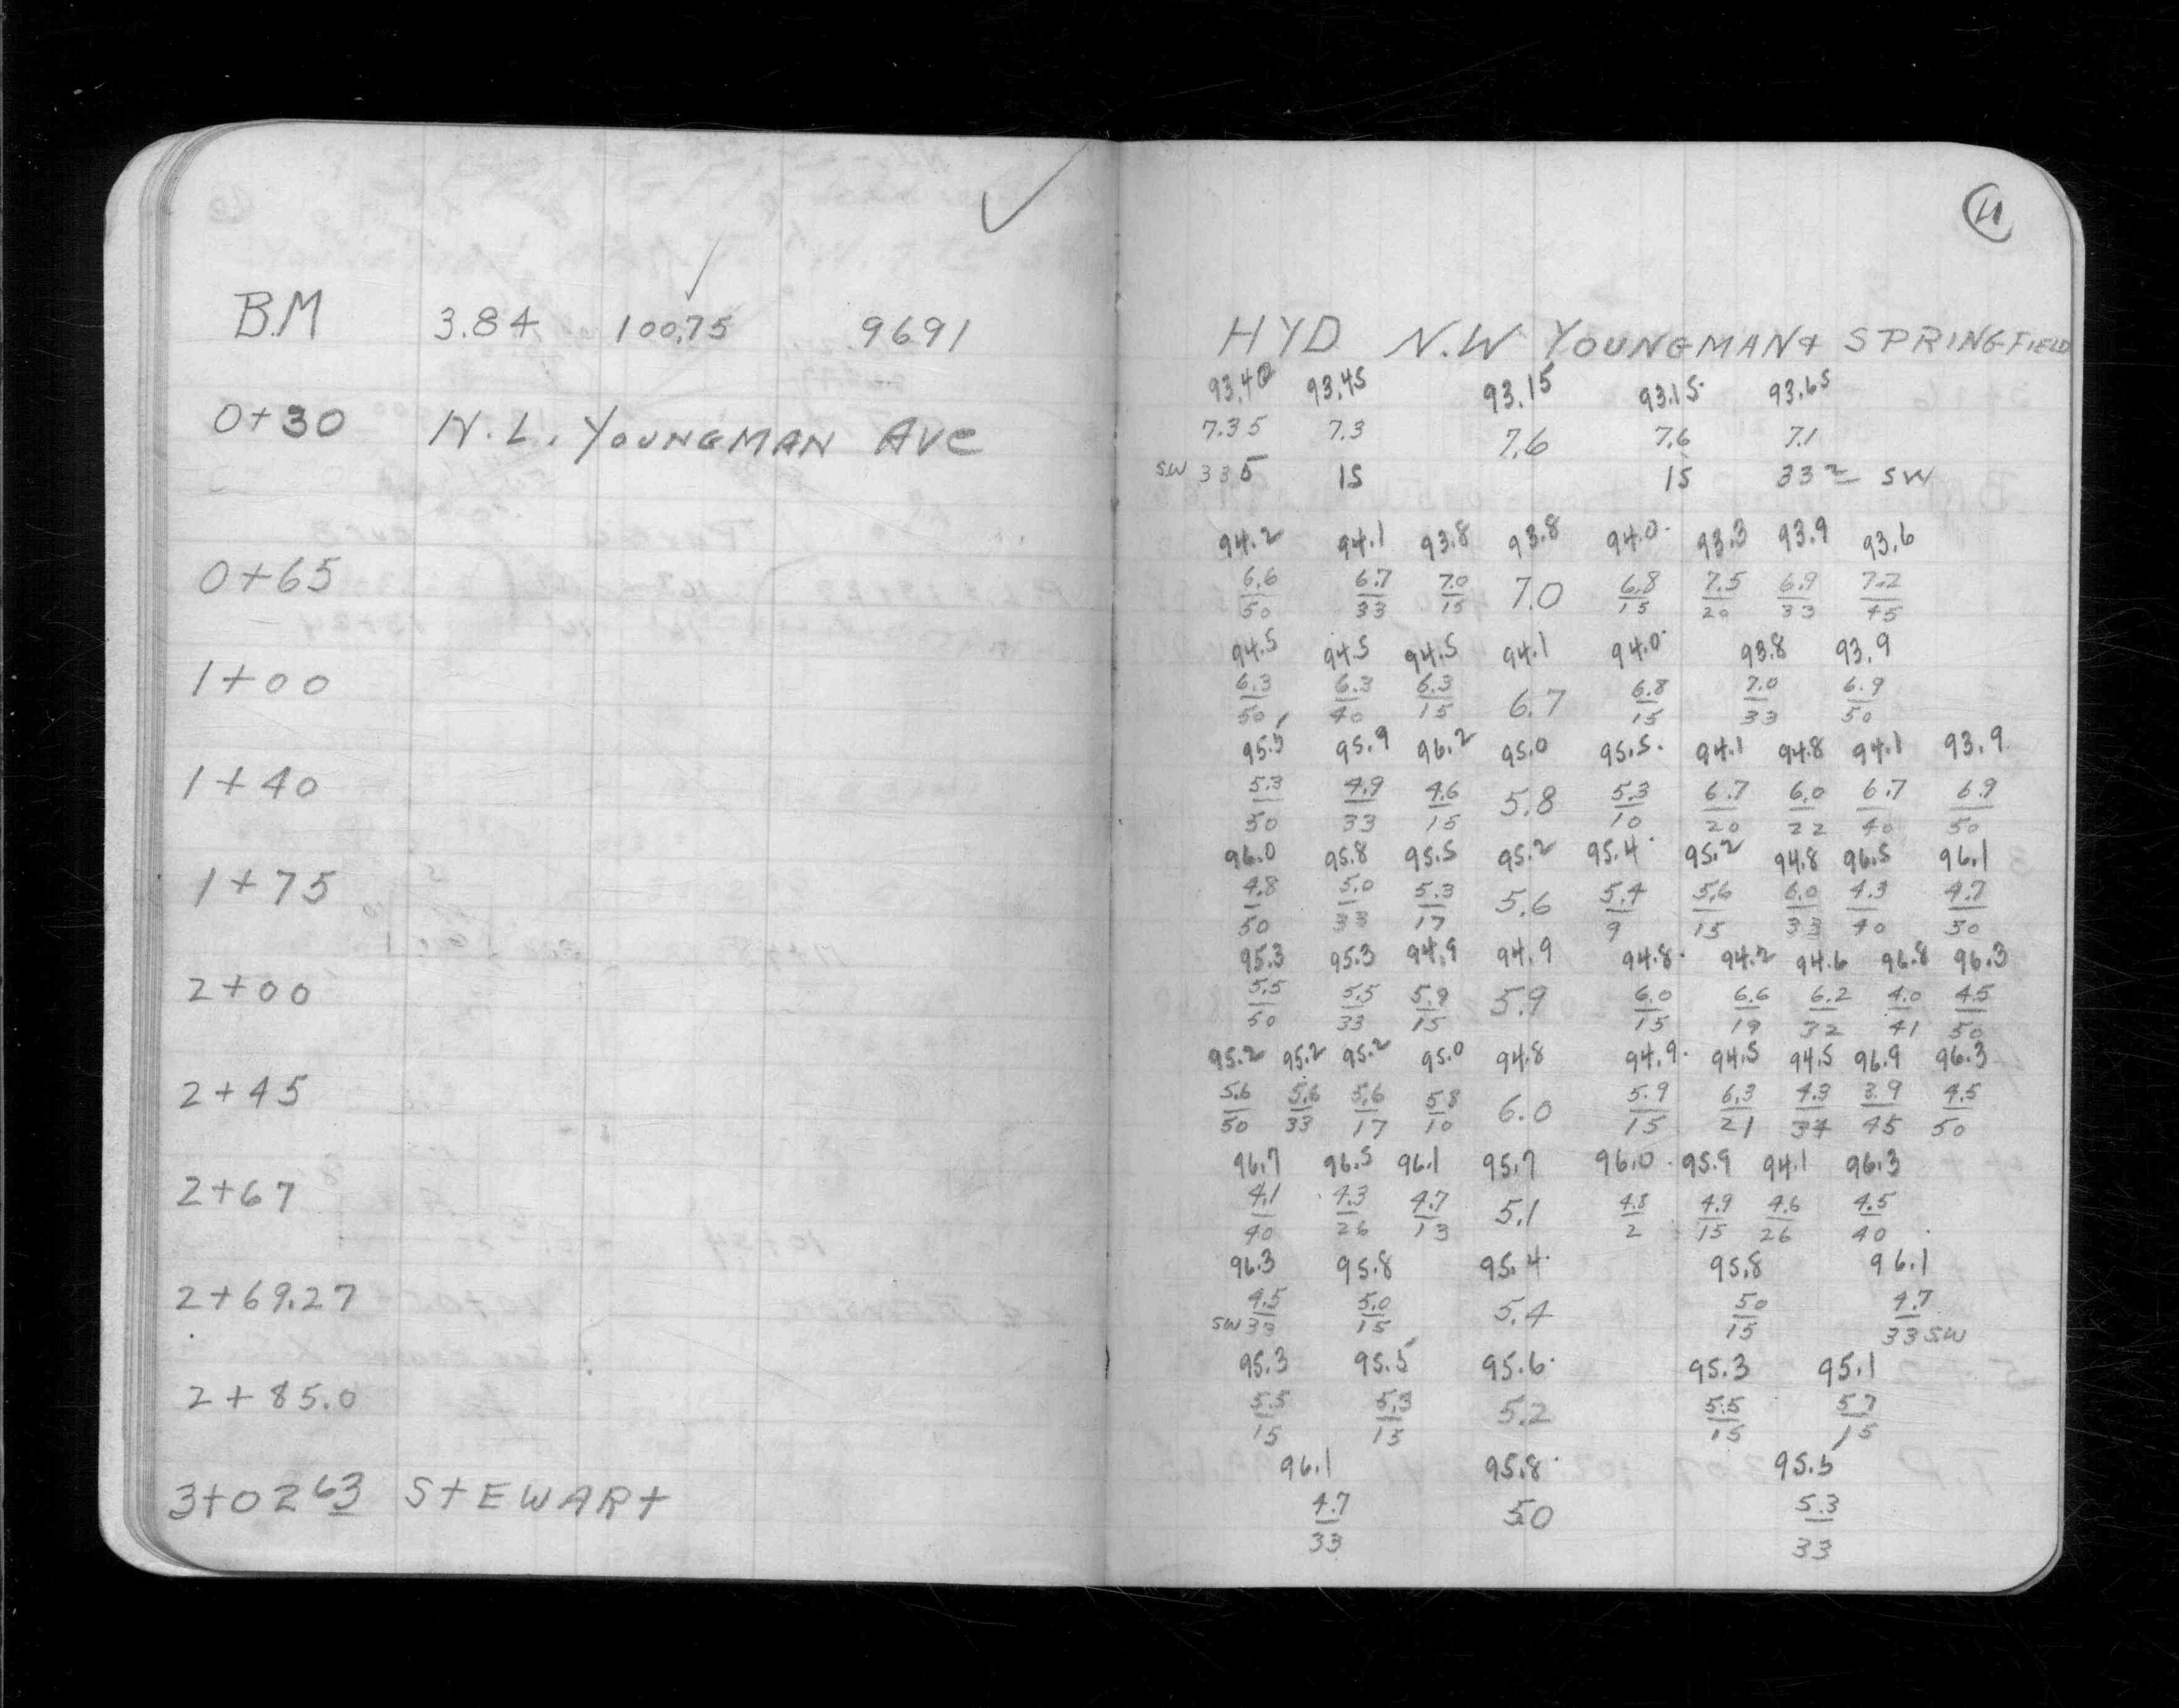 11
B.M 3.84 100.75 9691 HYD N.W YOUNGMAN & SPRINGFIELD
93.40 93.45 93.15 93.15 93.65
0+30 N.L. YOUNGMAN AVE 7.35 7.3 7.6 7.6 7.1
SW 335 15 15 332 SW
94.2 94.1 93.8 93.8 94.0 93.3 93.9 93.6
0+65 6.6/50 6.7/33 7.0/15 7.0 6.8/15 7.5/20 6.9/33 7.2/45
94.5 94.5 94.5 94.1 94.0 93.8 93.9
1+00 6.3/50 6.3/40 6.3/15 6.7 6.8/15 7.0/33 6.9/50
95.5 95.9 96.2 95.0 95.5 94.1 94.8 94.1 93.9
1+40 5.3/50 4.9/33 4.6/15 5.8 5.3/10 6.7/20 6.0/22 6.7/40 6.9/50
96.0 95.8 95.5 95.2 95.4 95.2 94.8 96.5 96.1
1+75 4.8/50 5.0/33 5.3/17 5.6 5.4/9 5.6/15 6.0/33 4.3/40 4.7/50
95.3 95.3 94.9 94.9 94.8 94.2 94.6 96.8 96.3
2+00 5.5/50 5.5/33 5.9/15 5.9 6.0/15 6.6/19 6.2/32 4.0/41 4.5/50
95.2 95.2 95.2 95.0 94.8 94.9 94.5 94.5 96.9 96.3
2+45 5.6/50 5.6/33 5.6/17 5.8/10 6.0 5.9/15 6.3/21 4.3/34 3.9/45 4.5/50
96.7 96.5 96.1 95.7 96.0 95.9 94.1 96.3
2+67 4.1/40 4.3/26 4.7/13 5.1 4.8/2 4.9/15 4.6/26 4.5/40
96.3 95.8 95.4 95.8 96.1
2+69.27 SW 4.5/33 5.0/15 5.4 50/15 4.7/33 SW
95.3 95.5 95.6 95.3 95.1
2+85.0 5.5/15 5.3/15 5.2 5.5/15 5.7/15
96.1 95.8 95.5
3+0263 STEWART 4.7/33 5.0 5.3/33